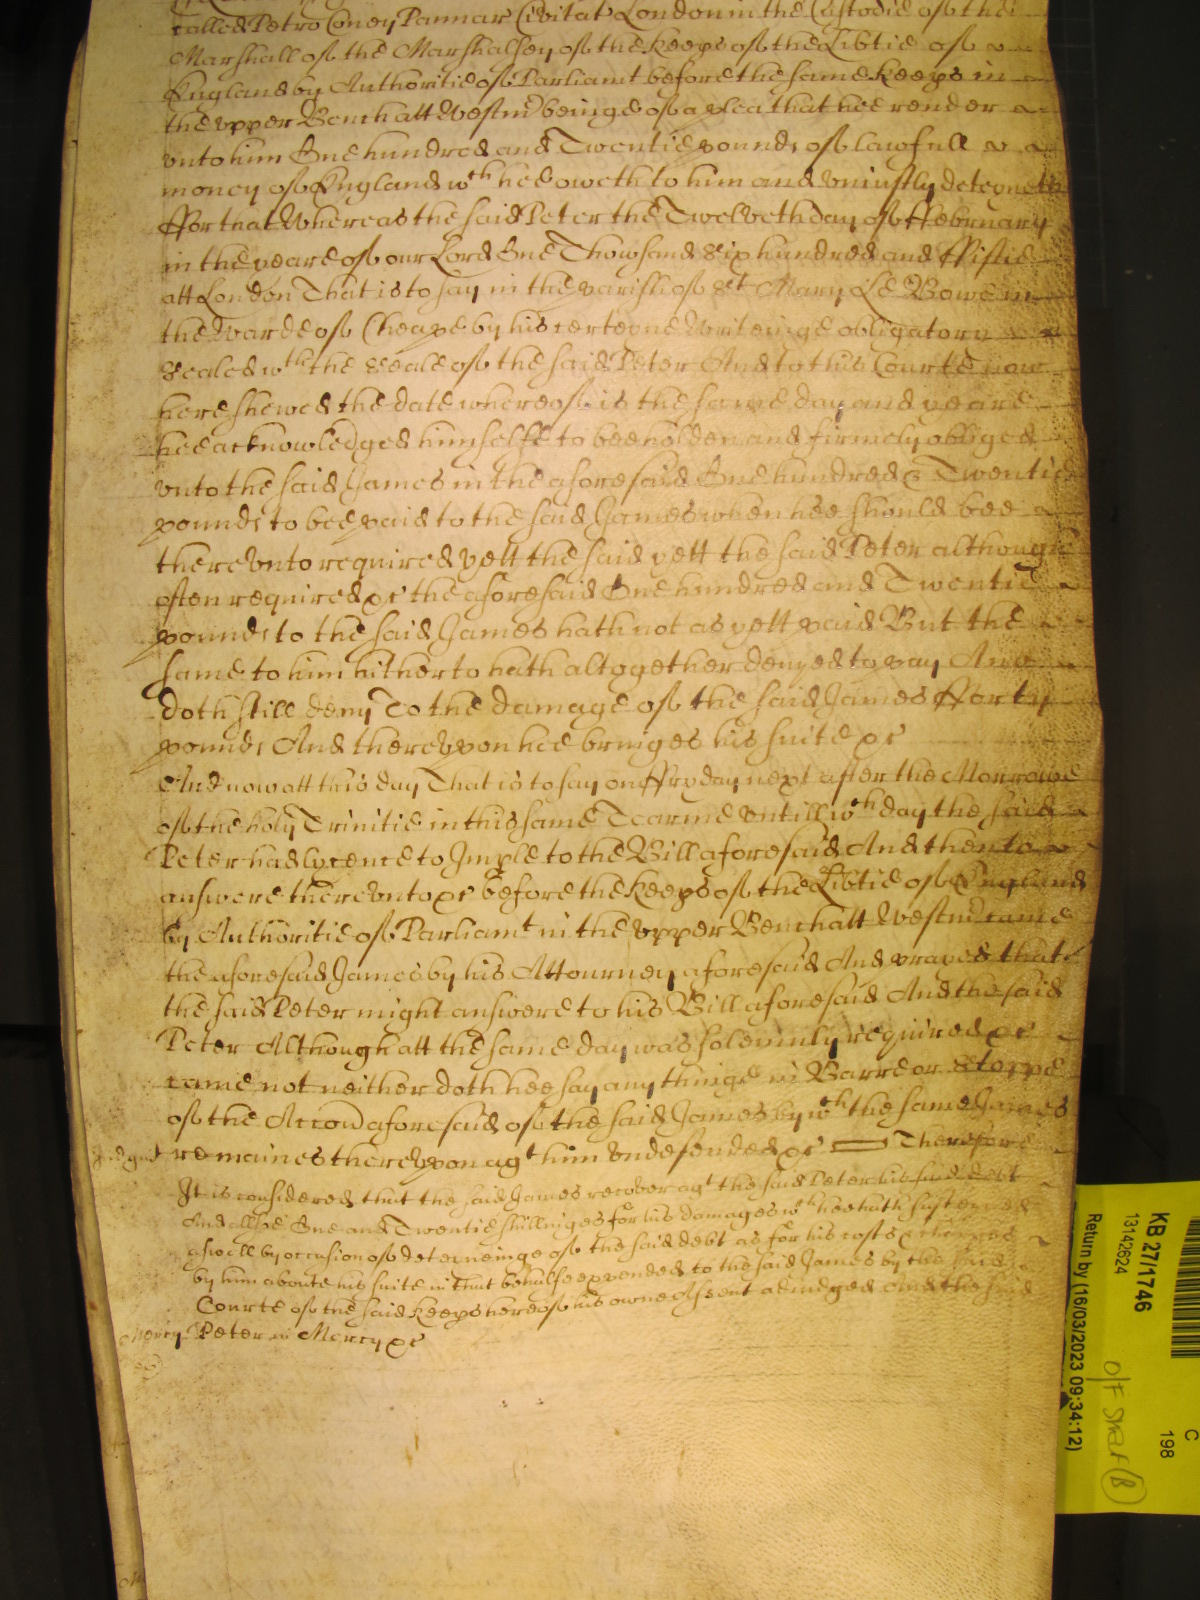 called Petro Coney Pannar Civitat London in the Custodie of the
Marshall of the Marshallsey of the Keeps of the Libtie of
England by Authoritie of Parliamt before the same Keeps in
the vpper Bench att Westm beinge of a plea that hee render
vnto him One hundred and Twentie pounds of lawfull
money of England wch hee oweth to him and vniustly deteyneth
ffor that Whereas the said Peter the Twelveth day of ffebruary
in the yeare of our Lord One Thowsand Six hundred and ffiftie
att London That is to say in the parish of St Mary Le Bowe in
the Warde of Cheape by his certeyne Writeinge obligatory
Sealed wth the Seale of the said Peter And to this Courte now
here shewed the date whereof is the same day and yeare
hee acknowledged himselfe to bee holden and firmely obliged
vnto the said James in the aforesaid One hundred & Twentie
pounds to bee paid to the said James when hee should bee
therevnto required yett the said yett the said Peter although
often required &c the aforesaid One hundred and Twentie
pounds to the said James hath not as yett paid But the
same to him hitherto hath altogether denyed to pay And
doth still deny To the damage of the said James fforty
pounds And therevpon hee bringes his suite &c
And now att this day That is to say on ffryday next after the Morrowe
of the holy Trinitie in this same Tearme vntill wch day the said
Peter had lycence to Imple to the Bill aforesaid And then to
answere therevnto &c before the Keeps of the Libtie of England
by Authoritie of Parliamt in the vpper Bench att Westm came
the aforesaid James by his Attourney aforesaid And prayes that
the said Peter might answere to his Bill aforesaid And the said
Peter Although att the same day was solemnly required &c
came not neither doth hee say any thinge in Barre or Stoppe
of the Accon aforesaid of the said James by wch the same James
Judgmt remaines therevpon agt him vndefended &c Therefore
It is considered that the said James recover agt the said Peter his said debt
And allsoe One and Twentie shillinges for his damages wch hee hath susteyned
aswell by occasion of deteineinge of the said debt as for his costs & charges
by him aboute his suite in that behalfe expended to the said James by the said
Courte of the said Keeps here of his owne Assent adiudged And the said
Mercy Peter in Mercy &c
KB 27/1746
13142624
Return by (16/03/2023 09:34:12)
C
198
O/F Staf (B)